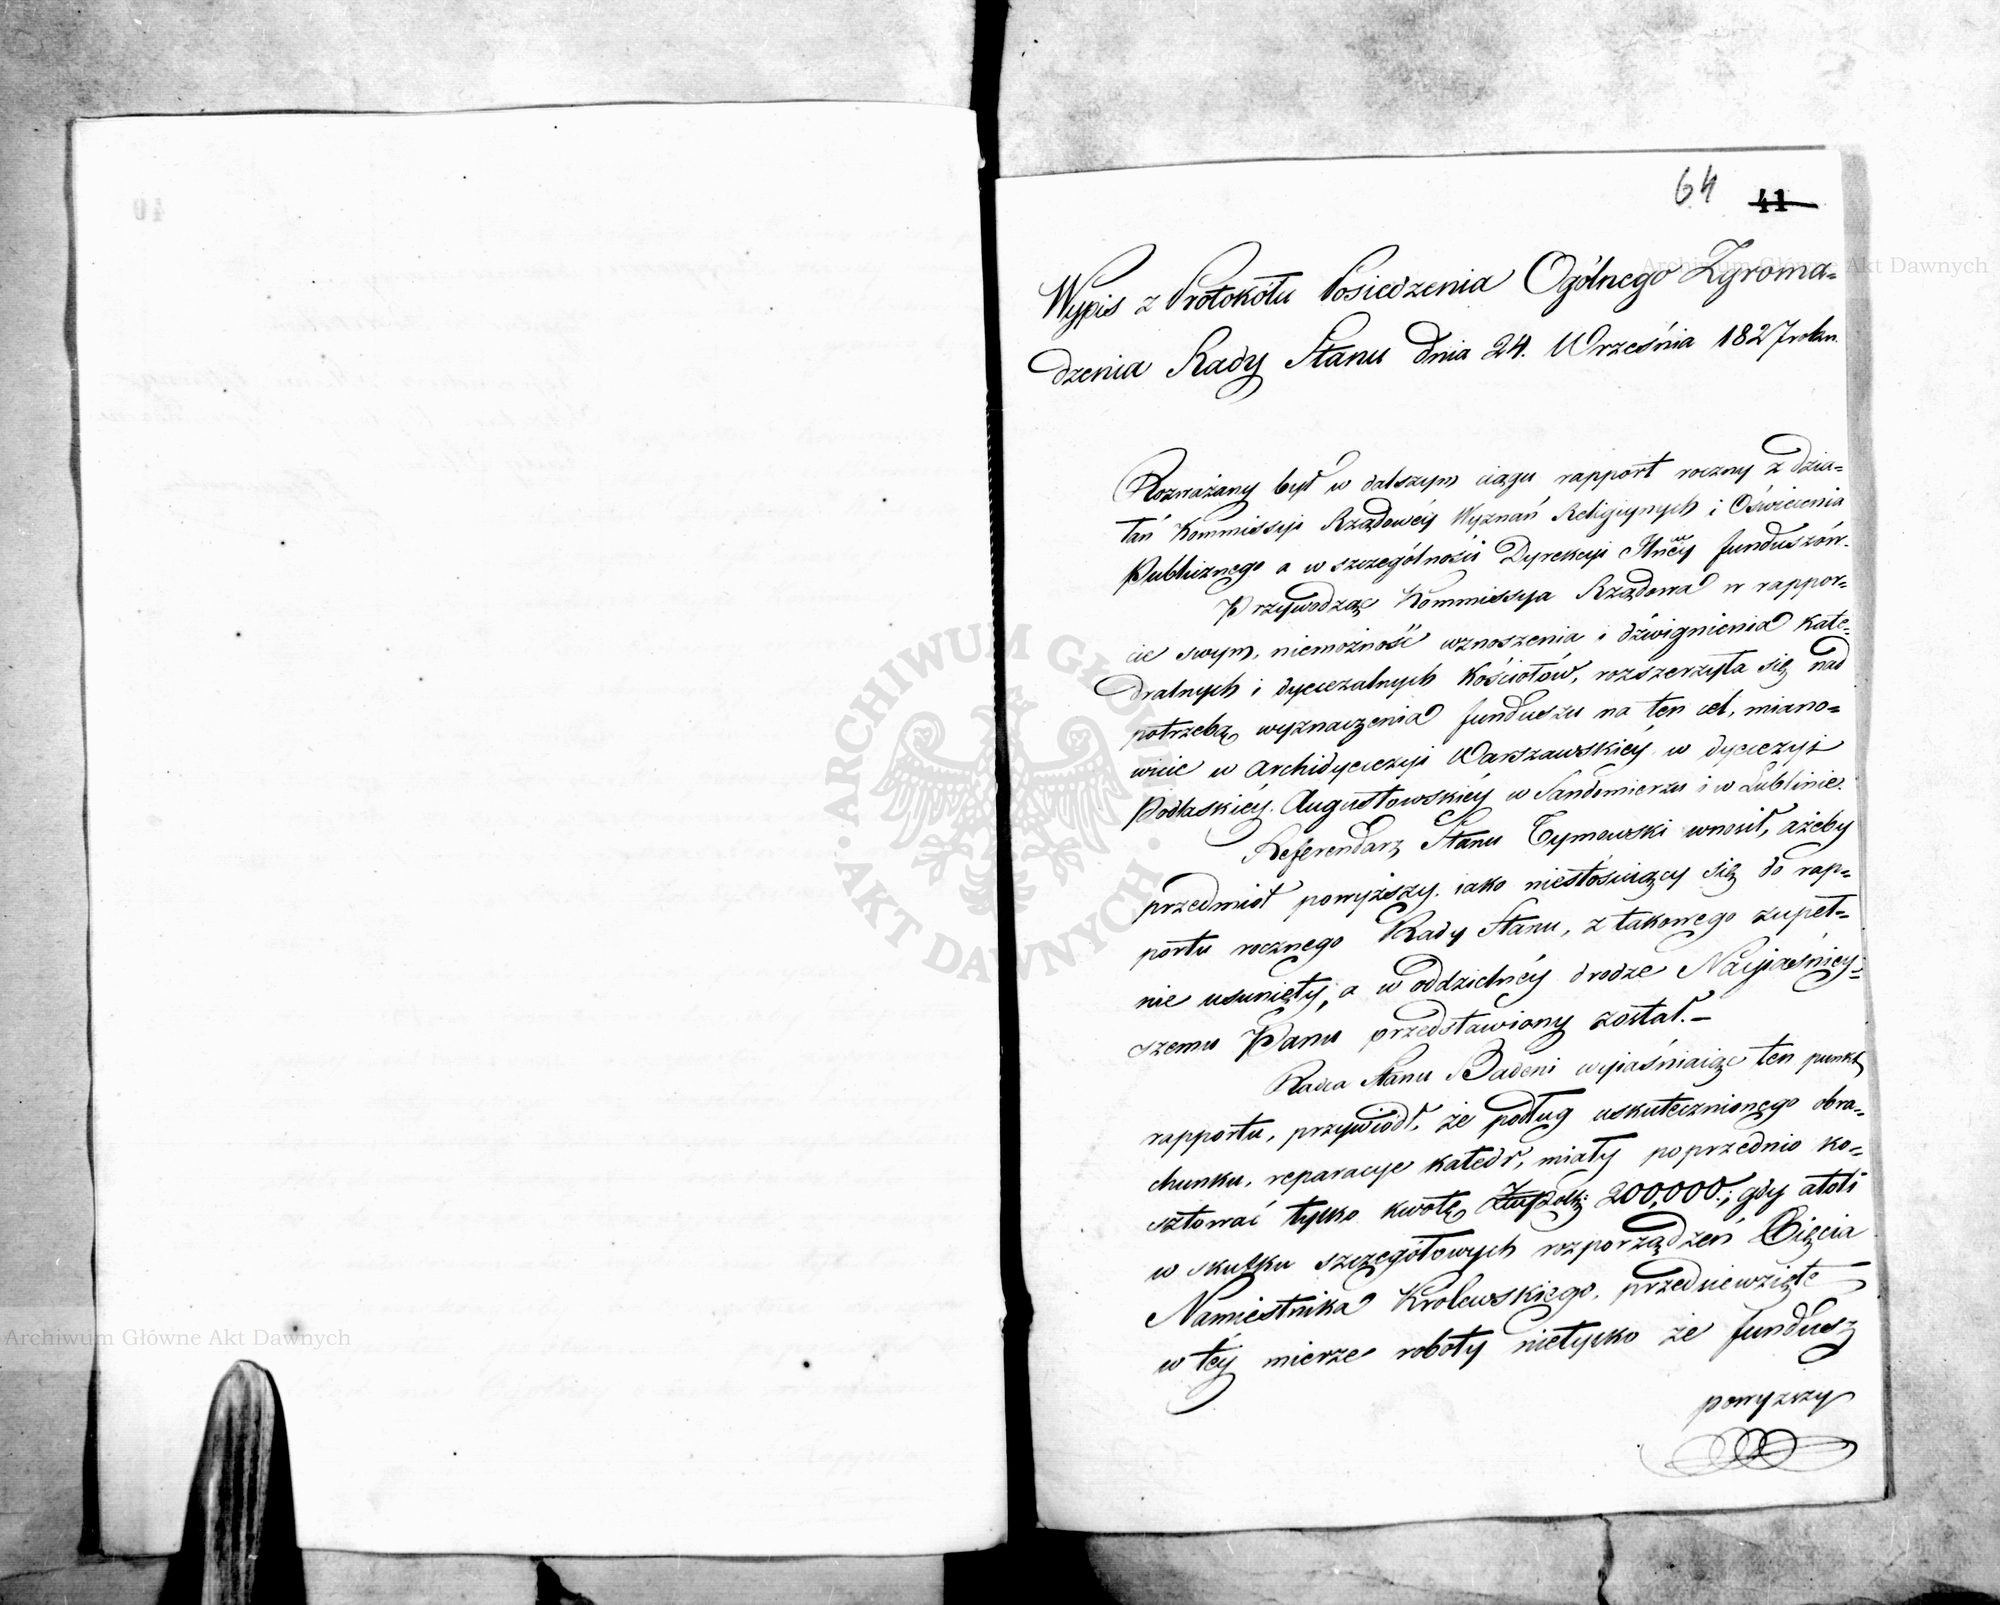 64 41
Wypis z Protokółu Posiedzenia Ogólnego Zgroma=
dzenia Rady Stanu dnia 24. Września 1827 roku.
Rozważany był w dalszym ciągu rapport roczny z dzia=
łań Kommissyi Rządowéy Wyznań Religiynych i Oświecenia
Publicznego a w szczególności Dyrekcyi funduszów.
Przywodząc Kommissya Rządowa w rappor=
cie swym, niemożność wznoszenia i dźwignienia kate=
dralnych i dyecezalnych Kościołów, rozszerzyła się nad
potrzebą wyznaczenia funduszu na ten cel, miano=
wicie w Archidyecezyi Warszawskiéy w dyecezyi
Podlaskiéy, Augustowskiéy w Sandomierzu i w Lublinie.
Referendarz Stanu Tymowski wnosił, ażeby
przedmiot powyższy, iako niestosuiący się do rap=
portu rocznego Rady Stanu, z takowego zupeł=
nie usunięty, a w oddzielnéy drodze Nayiaśniey=
szemu Panu przedstawiony został.—
Radca Stanu Badeni wyiaśniaiąc ten punkt
rapportu, przywiódł, że podług uskutecznionego obra=
chunku, reparacye katedr, miały poprzednio ko=
sztować tylko kwotę Złp 200,000.; gdy atoli
w skutku szczegółowych rozporządzeń Xięcia
Namiestnika Królewskiego, przedsiewzięte
w téy mierze roboty nietylko że fundusz
powyższy
ARCHIWUM GŁÓWNE AKT DAWNYCH
Archiwum Główne Akt Dawnych
Archiwum Główne Akt Dawnych